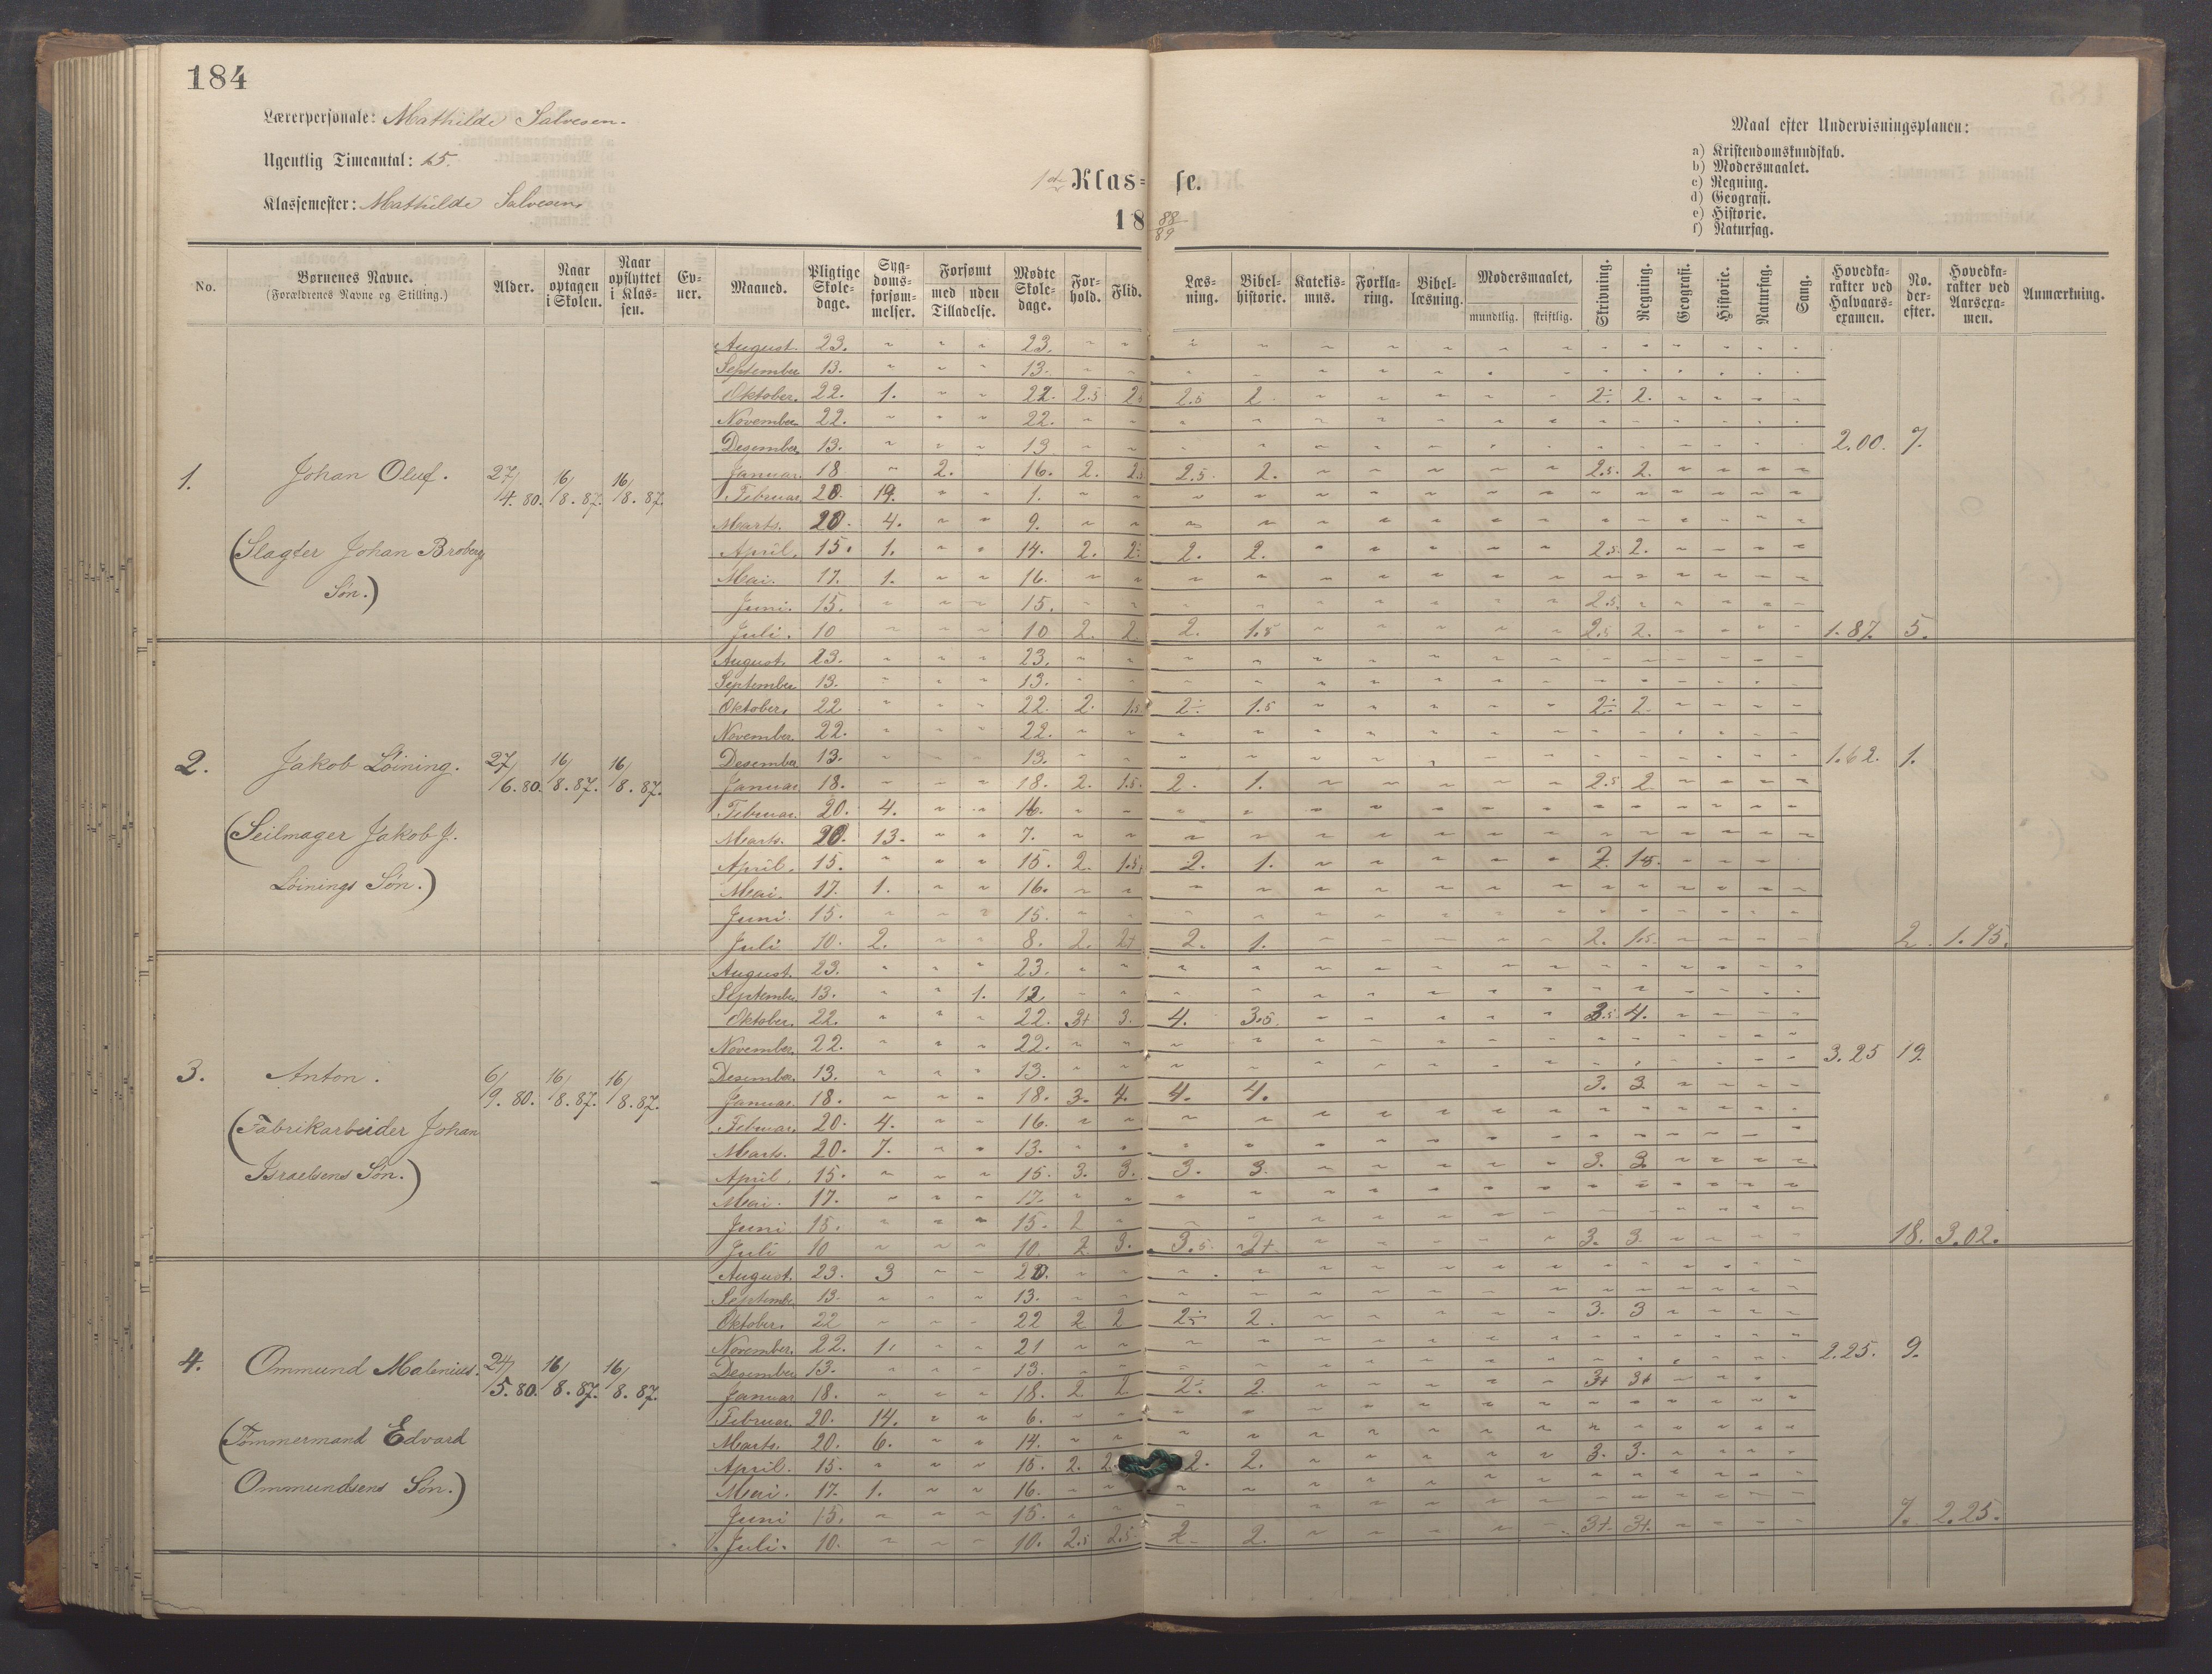 184
Lærerpersonale: Mathilde Salvesen.
Ugentlig Timeantal: 15.
Klassemester: Mathilde Salvesen
1ste Klas= se.
18 88/89
Maal efter Undervisningsplanen:
a) Kristendomskundskab.
b) Modersmaalet.
c) Regning.
d) Geografi.
e) Historie.
f) Naturfag.
No. | Børnenes Navne. (Forældrenes Navne og Stilling.) | Alder. | Naar optagen i Skolen. | Naar opflyttet i Klassen. | Evner. | Maaned. | Pligtige Skoledage. | Sygdomsforsømmelser. | Forsømt med uden Tilladelse. | Mødte Skoledage. | Forhold. | Flid. | Læsning. | Bibelhistorie. | Katekismus. | Forklaring. | Bibellæsning. | Modersmaalet, mundtlig. skriftlig. | Skrivning. | Regning. | Geografi. | Historie. | Naturfag. | Sang. | Hovedkarakter ved Halvaarsexamen. | No. derefter. | Hovedkarakter ved Aarsexamen. | Anmærkning.
1. Johan Oluf. 27/4.80. 16/8.87. 16/8.87.
(Slagter Johan Brobergs
Søn.)
August 23. " " " 23.
September 13. " " " 13.
Oktober. 22. 1. " " 22. 2.5 2.5 2.2 2 2÷ 2.
November. 22. " " " 22.
Desember 13. " " " 13 2.00. 7.
Januar. 18 " 2. " 16. 2. 2.5 2.5. 2. 2.5. 2.
Februar. 20. 19. " " 1.
Marts. 20. 4. " " 9.
April. 15. 1. " " 14. 2. 2÷ 2. 2. 2.5. 2.
Mai. 17. 1. " " 16.
Juni. 15. " " " 15. 2.5.
Juli. 10 " " " 10 2. 2. 2. 1.5 2.5 2. 1.87. 5.
2. Jakob Løining. 27/6.80. 16/8.87. 16/8.87.
(Seilmager Jakob J.
Løinings Søn.)
August. 23. " " " 23.
September 13. " " " 13.
Oktober. 22 " " " 22. 2. 1.5 2÷ 1.5 2÷ 2.
November. 22. " " " 22.
Desember 13. " " " 13. 1.62. 1.
Januar 18. " " " 18. 2. 1.5. 2. 1. 2.5 2
Februar. 20. 4. " " 16.
Marts. 20. 13. " " 7.
April. 15. " " " 15. 2. 1.5. 2. 1. 2. 1.5.
Mai. 17. 1. " " 16.
Juni. 15. " " " 15.
Juli 10. 2. " " 8. 2. 2+ 2. 1. 2. 1.5. 2. 1.75.
3. Anton. 6/9.80. 16/8.87. 16/8.87.
(Fabrikarbeider Johan
Israelsens Søn.)
August. 23. " " " 23.
September. 13. " " 1. 12
Oktober. 22. " " " 22. 3+ 3. 4. 3.5. 3.5 4.
November. 22. " " " 22.
Desember. 13. " " " 13. 3.25 19.
Januar. 18. " " " 18. 3. 4. 4. 4. 3. 3
Februar. 20. 4. " " 16.
Marts. 20. 7. " " 13.
April. 15. " " " 15. 3. 3. 3. 3. 3. 3.
Mai. 17. " " " 17.
Juni 15. " " " 15. 2
Juli 10 " " " 10. 2 3. 3.5. 2+ 3. 3 18. 3.02.
4. Ommund Malenius. 24/5.80. 16/8.87. 16/8.87.
(Tømmermand Edvard
Ommundsens Søn.)
August. 23. 3 " " 20.
Septembr. 13. " " " 13.
Oktober. 22 " " " 22 2 2 2÷ 2. 3. 3
November. 22. 1. " " 21
Desember 13. " " " 13. 2.25. 9.
Januar 18. " " " 18. 2 2 2÷ 2. 3+ 3+
Februar. 20. 14. " " 6.
Marts. 20. 6. " " 14.
April. 15. " " " 15. 2. 2. 2. 2. 3. 3.
Mai. 17. 1. " " 16.
Juni 15. " " " 15.
Juli. 10. " " " 10. 2.5 2.5 2 2. 3+ 3+. 7. 2.25.